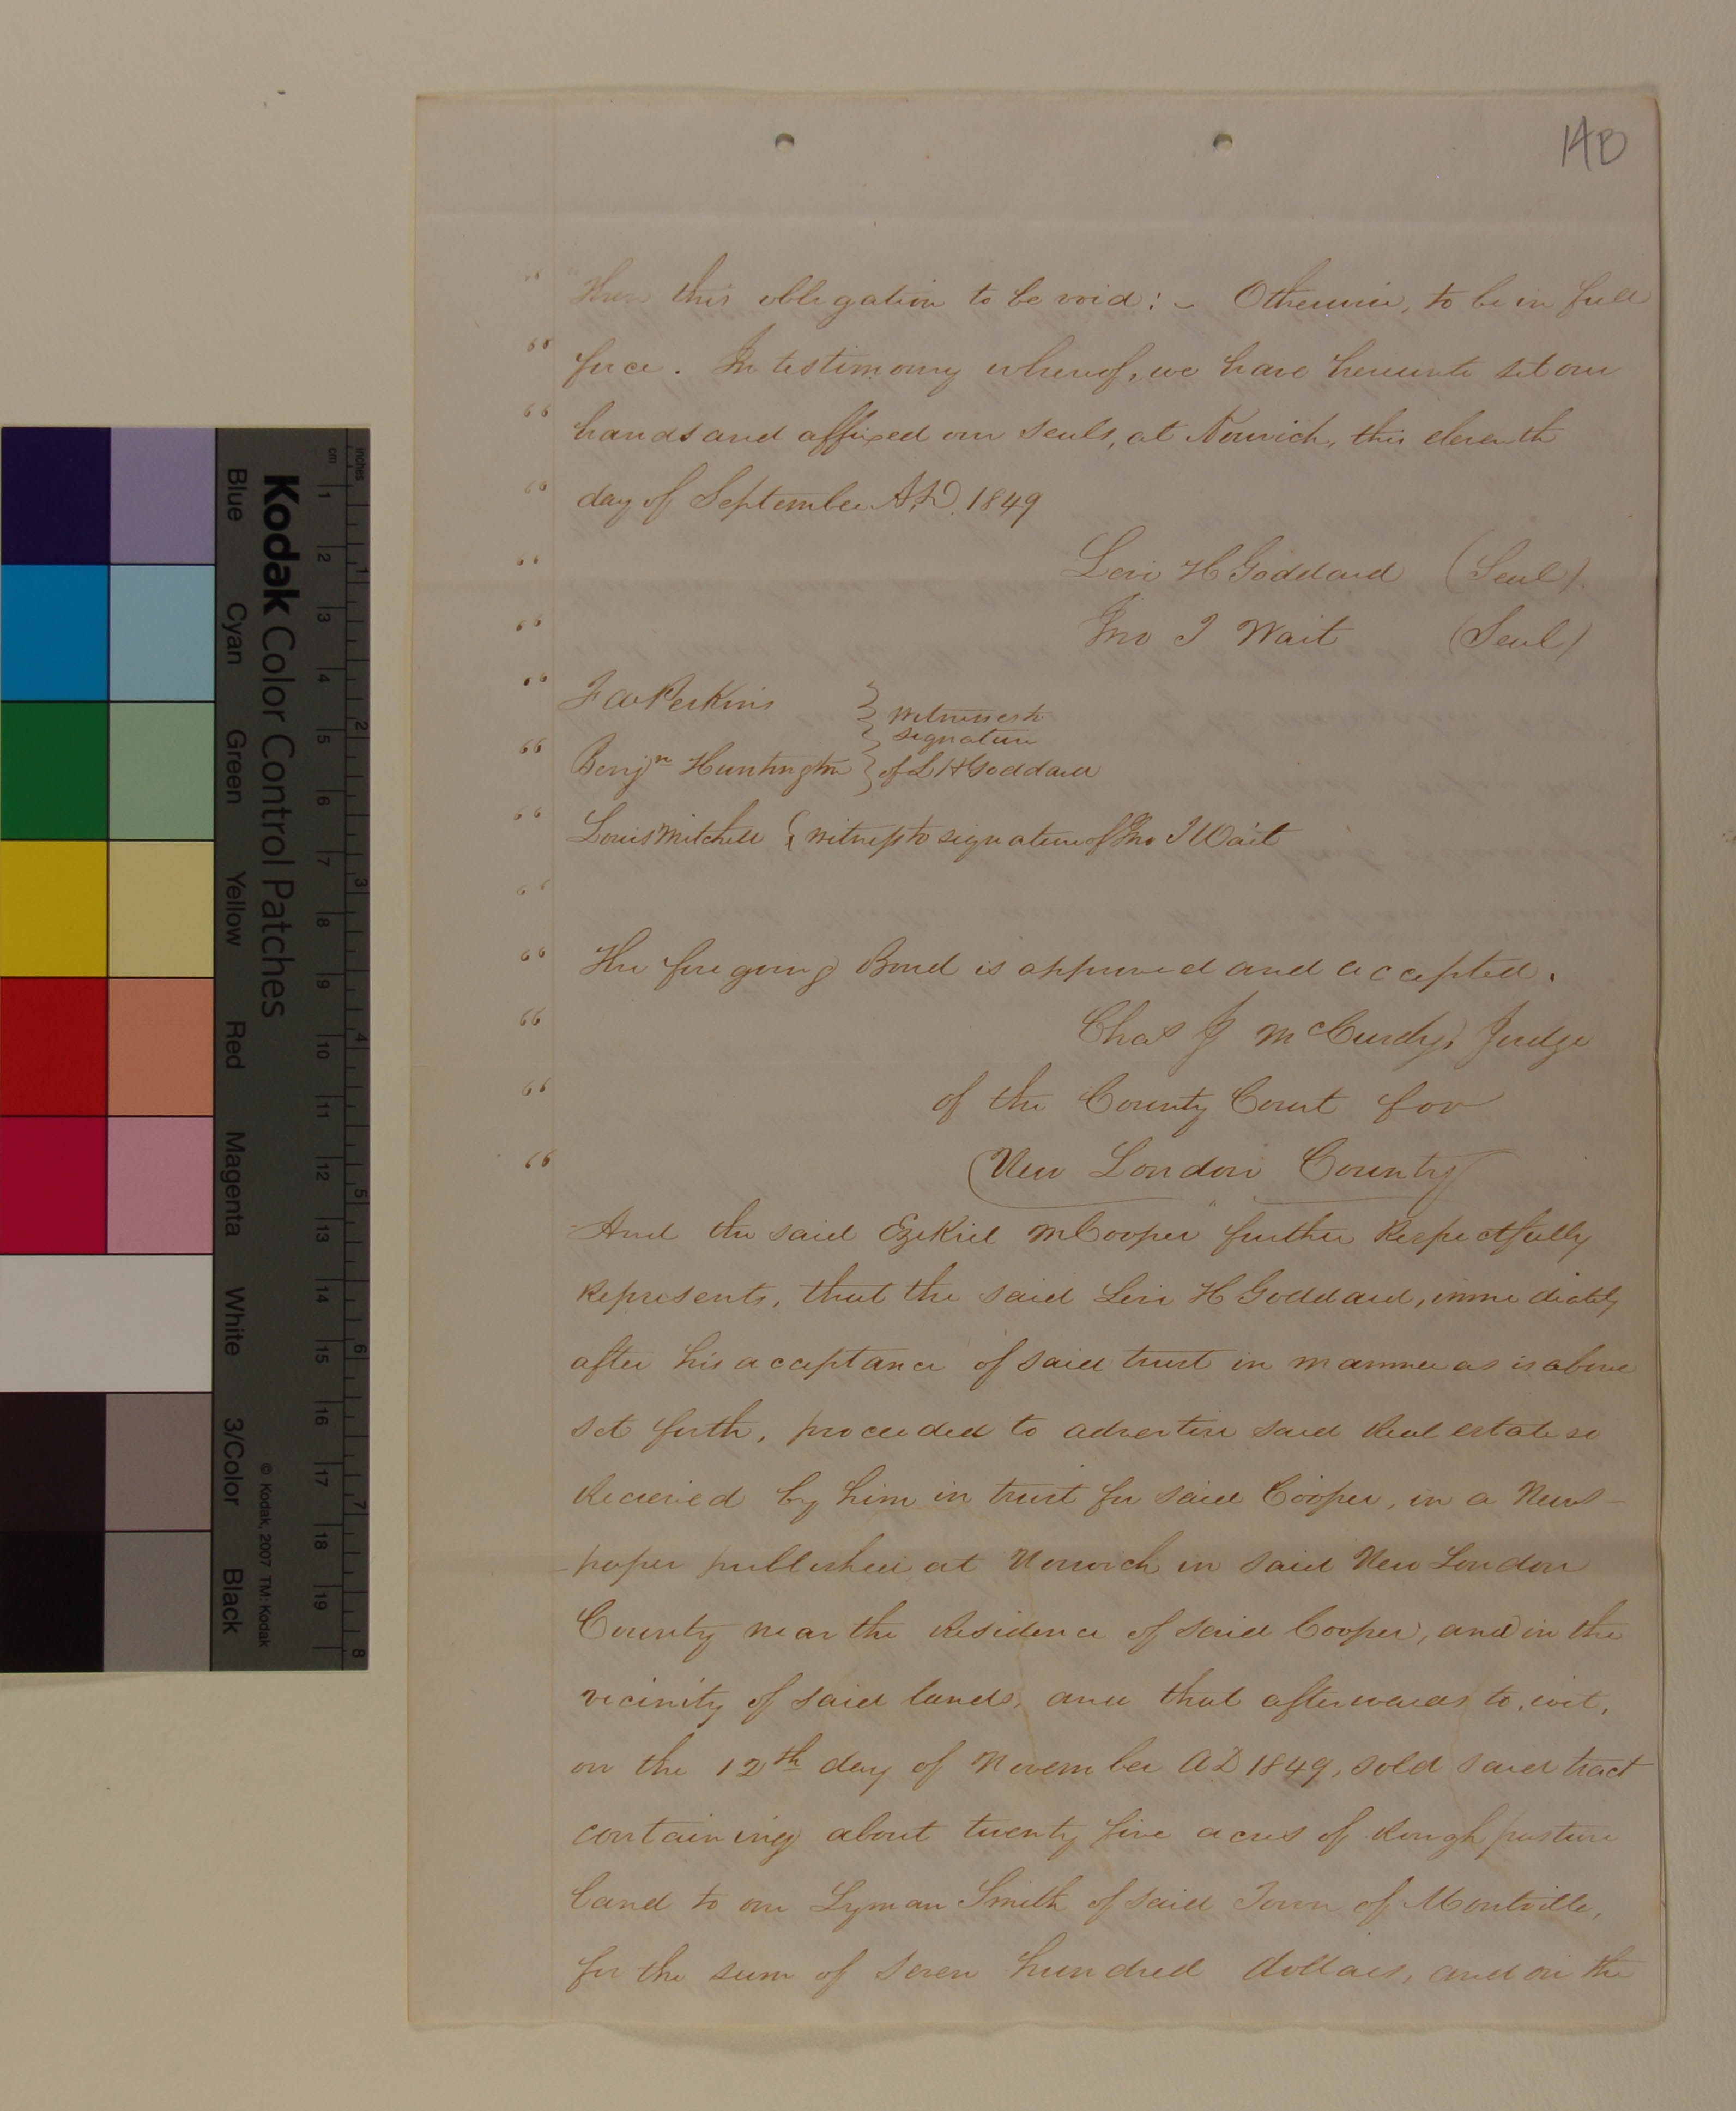 14B
" "Then this obligation to be void: - Otherwise, to be in full
" force. In testimony whereof, we have hereunto set our
" hands and affixed our seals, at Norwich, this eleventh
" day of September A.D. 1849
" Levi H Goddard (Seal).
" Jno T Wait (Seal)
" F W Perkins } witnesses to
signature
" Benjn Huntington } of L H Goddard
" Louis Mitchell { witness to signature of Jno T Wait
"
" The foregoing Bond is approved and accepted.
" Chas J McCurdy, Judge
" of the County Court for
" New London County"
And the said Ezekiel M Cooper further Respectfully
Represents, that the said Levi H Goddard, immediately
after his acceptance of said trust in manner as is above
set forth, proceeded to advertise said Real estate so
Recieved by him in trust for said Cooper, in a News-
paper published at Norwich in said New London
County near the Residence of said Cooper, and in the
vicinity of said lands, and that afterwards to, wit,
on the 12th day of November AD 1849, sold said tract
containing about twenty five acres of Rough pasture
land to one Lyman Smith of said Town of Montville,
for the sum of Seven hundred dollars, and on the
Kodak Color Control Patches
Blue Cyan Green Yellow Red Magenta White 3/Color Black
© Kodak, 2007 TM: Kodak
inches 1 2 3 4 5 6 7 8
cm 1 2 3 4 5 6 7 8 9 10 11 12 13 14 15 16 17 18 19